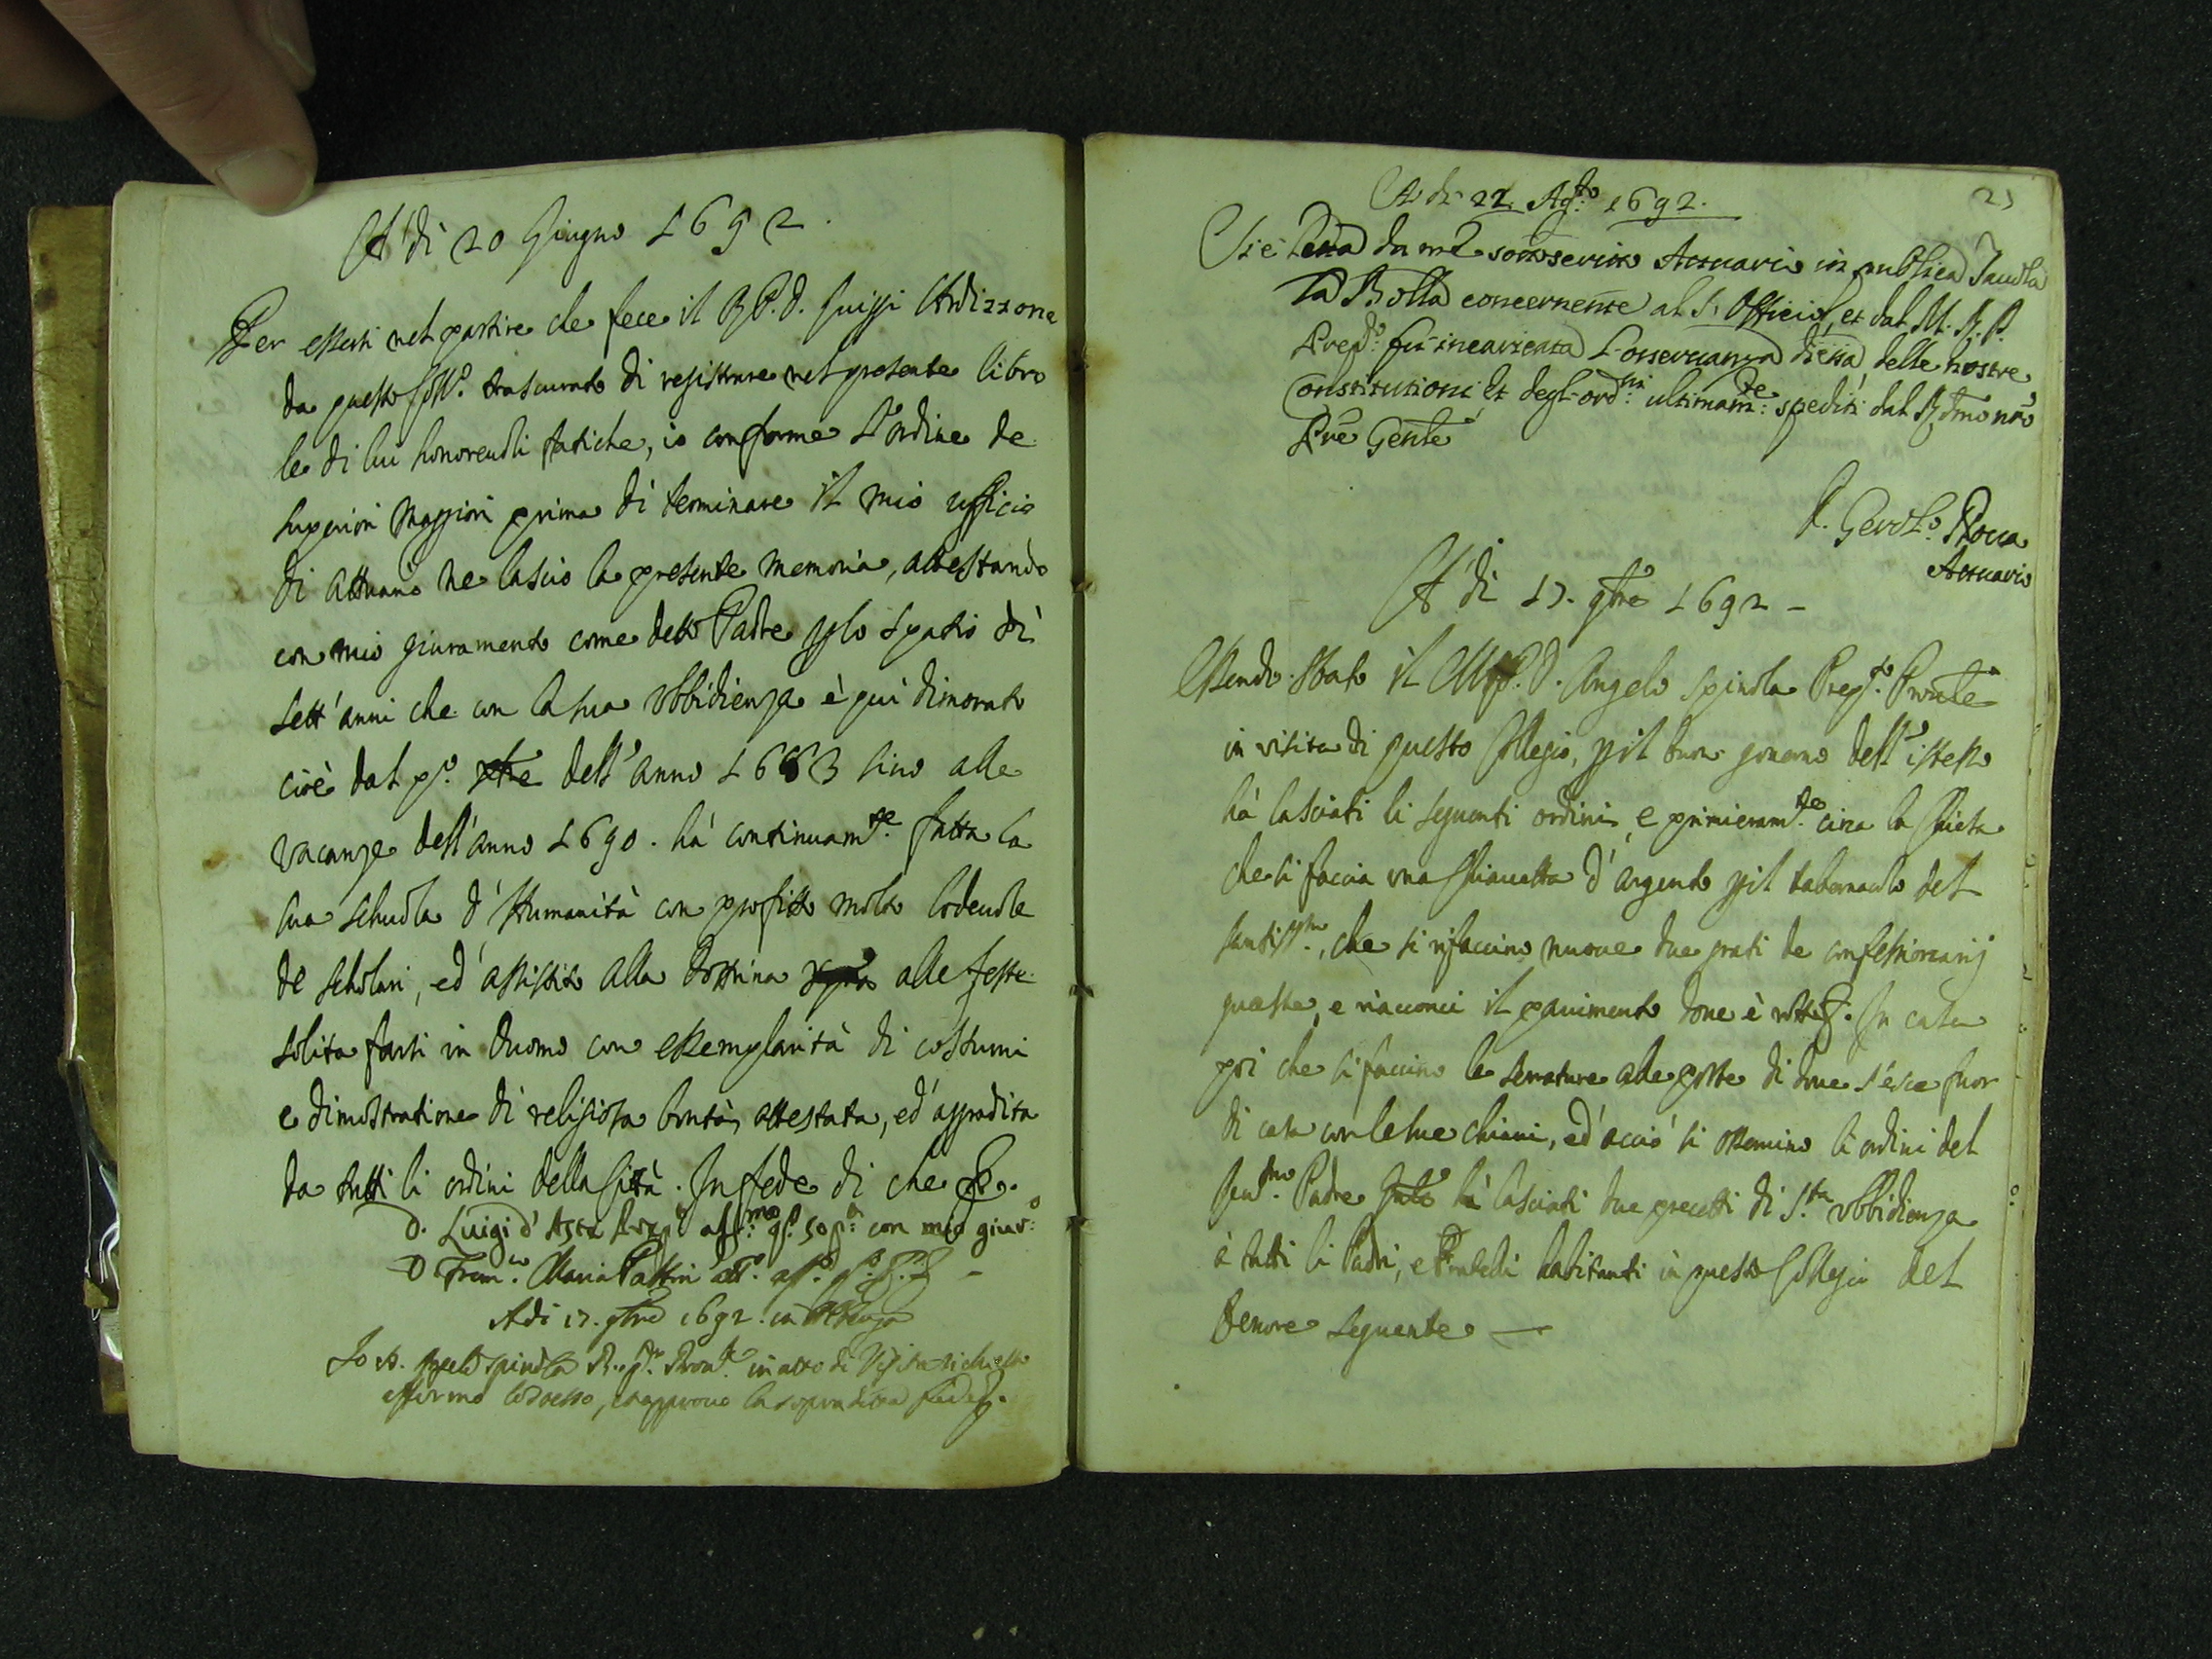 A' dì 20 Giugno 1692.
Per essersi nel partire che fece il R. P. D. Luiggi Ardizzone
da questo Coll.º trascurato di registrare nel presente libro
le di lui honorevoli fatiche, io conforme L'ordine de
superiori Maggiori prima di terminare il mio ufficio
di Attuario ne lascio la presente memoria, attestando
con mio giuramento come detto Padre p lo spatio di
sett'anni che con la sua Ubbidienza è qui dimorato
cioè dal p.º dell'anno 1683 sino alle
vacanze dell'anno 1690. hà continuam.te fatta la
sua schuola d'Humanità con profitto molto lodevole
de scholari, ed assistito alla dottrina alle feste
solita farsi in Duomo con essemplarità di costumi
e dimostratione di religiosa bontà, attestata, ed aggradita
da tutti li ordini della Città. In fede di che &.
D. Luigi d'Asta aff.mo q.to sop.a con mio giur.º
D. Fran.co Maria Pattrini
Adi 17. 9bre 1692. in
Io D. Angelo Spinola Prov.le in atto di Visita
affermo lo stesso, et approvo la sopradetta fede &.
21
A dì 22. Ag.to 1692.
Si è letta da me sottoscritto Attuario in publica Tavola
la Bolla concernente al S. Officio, et dal M. R. P.
Prep.to fu incaricata L'osservanza d'essa, delle nostre
Constitutioni, et degl'ord.ni ultimam.te spediti dal R.dmo nro
Pre Gente
D. Gerol.º Rocca
Attuario
A' dì 17. 9bre 1692 -
Essendo stato il M. R. P. D. Angelo Spinola Prep.to Proule
in visita di questo Collegio, p il buon governo dell'istesso
hà lasciati li seguenti ordini, e primieram.te circa la Chiesa
che si faccia una Chiavetta d'argento p il tabernacolo del
Santiss.mo, che si rifaccino nuove due grati de confessionarij
queste, e riacconci il pavimento dove è rotto &. In casa
poi che si faccino le serrature alle porte di dove s'esce fuor
di casa con le sue chiavi, ed acciò si osservino li ordini del
Rev.mo Padre hà lasciati due precetti di S.ta Ubbidienza
à tutti li Padri, e Fratelli habitanti in questo Collegio del
tenore seguente —